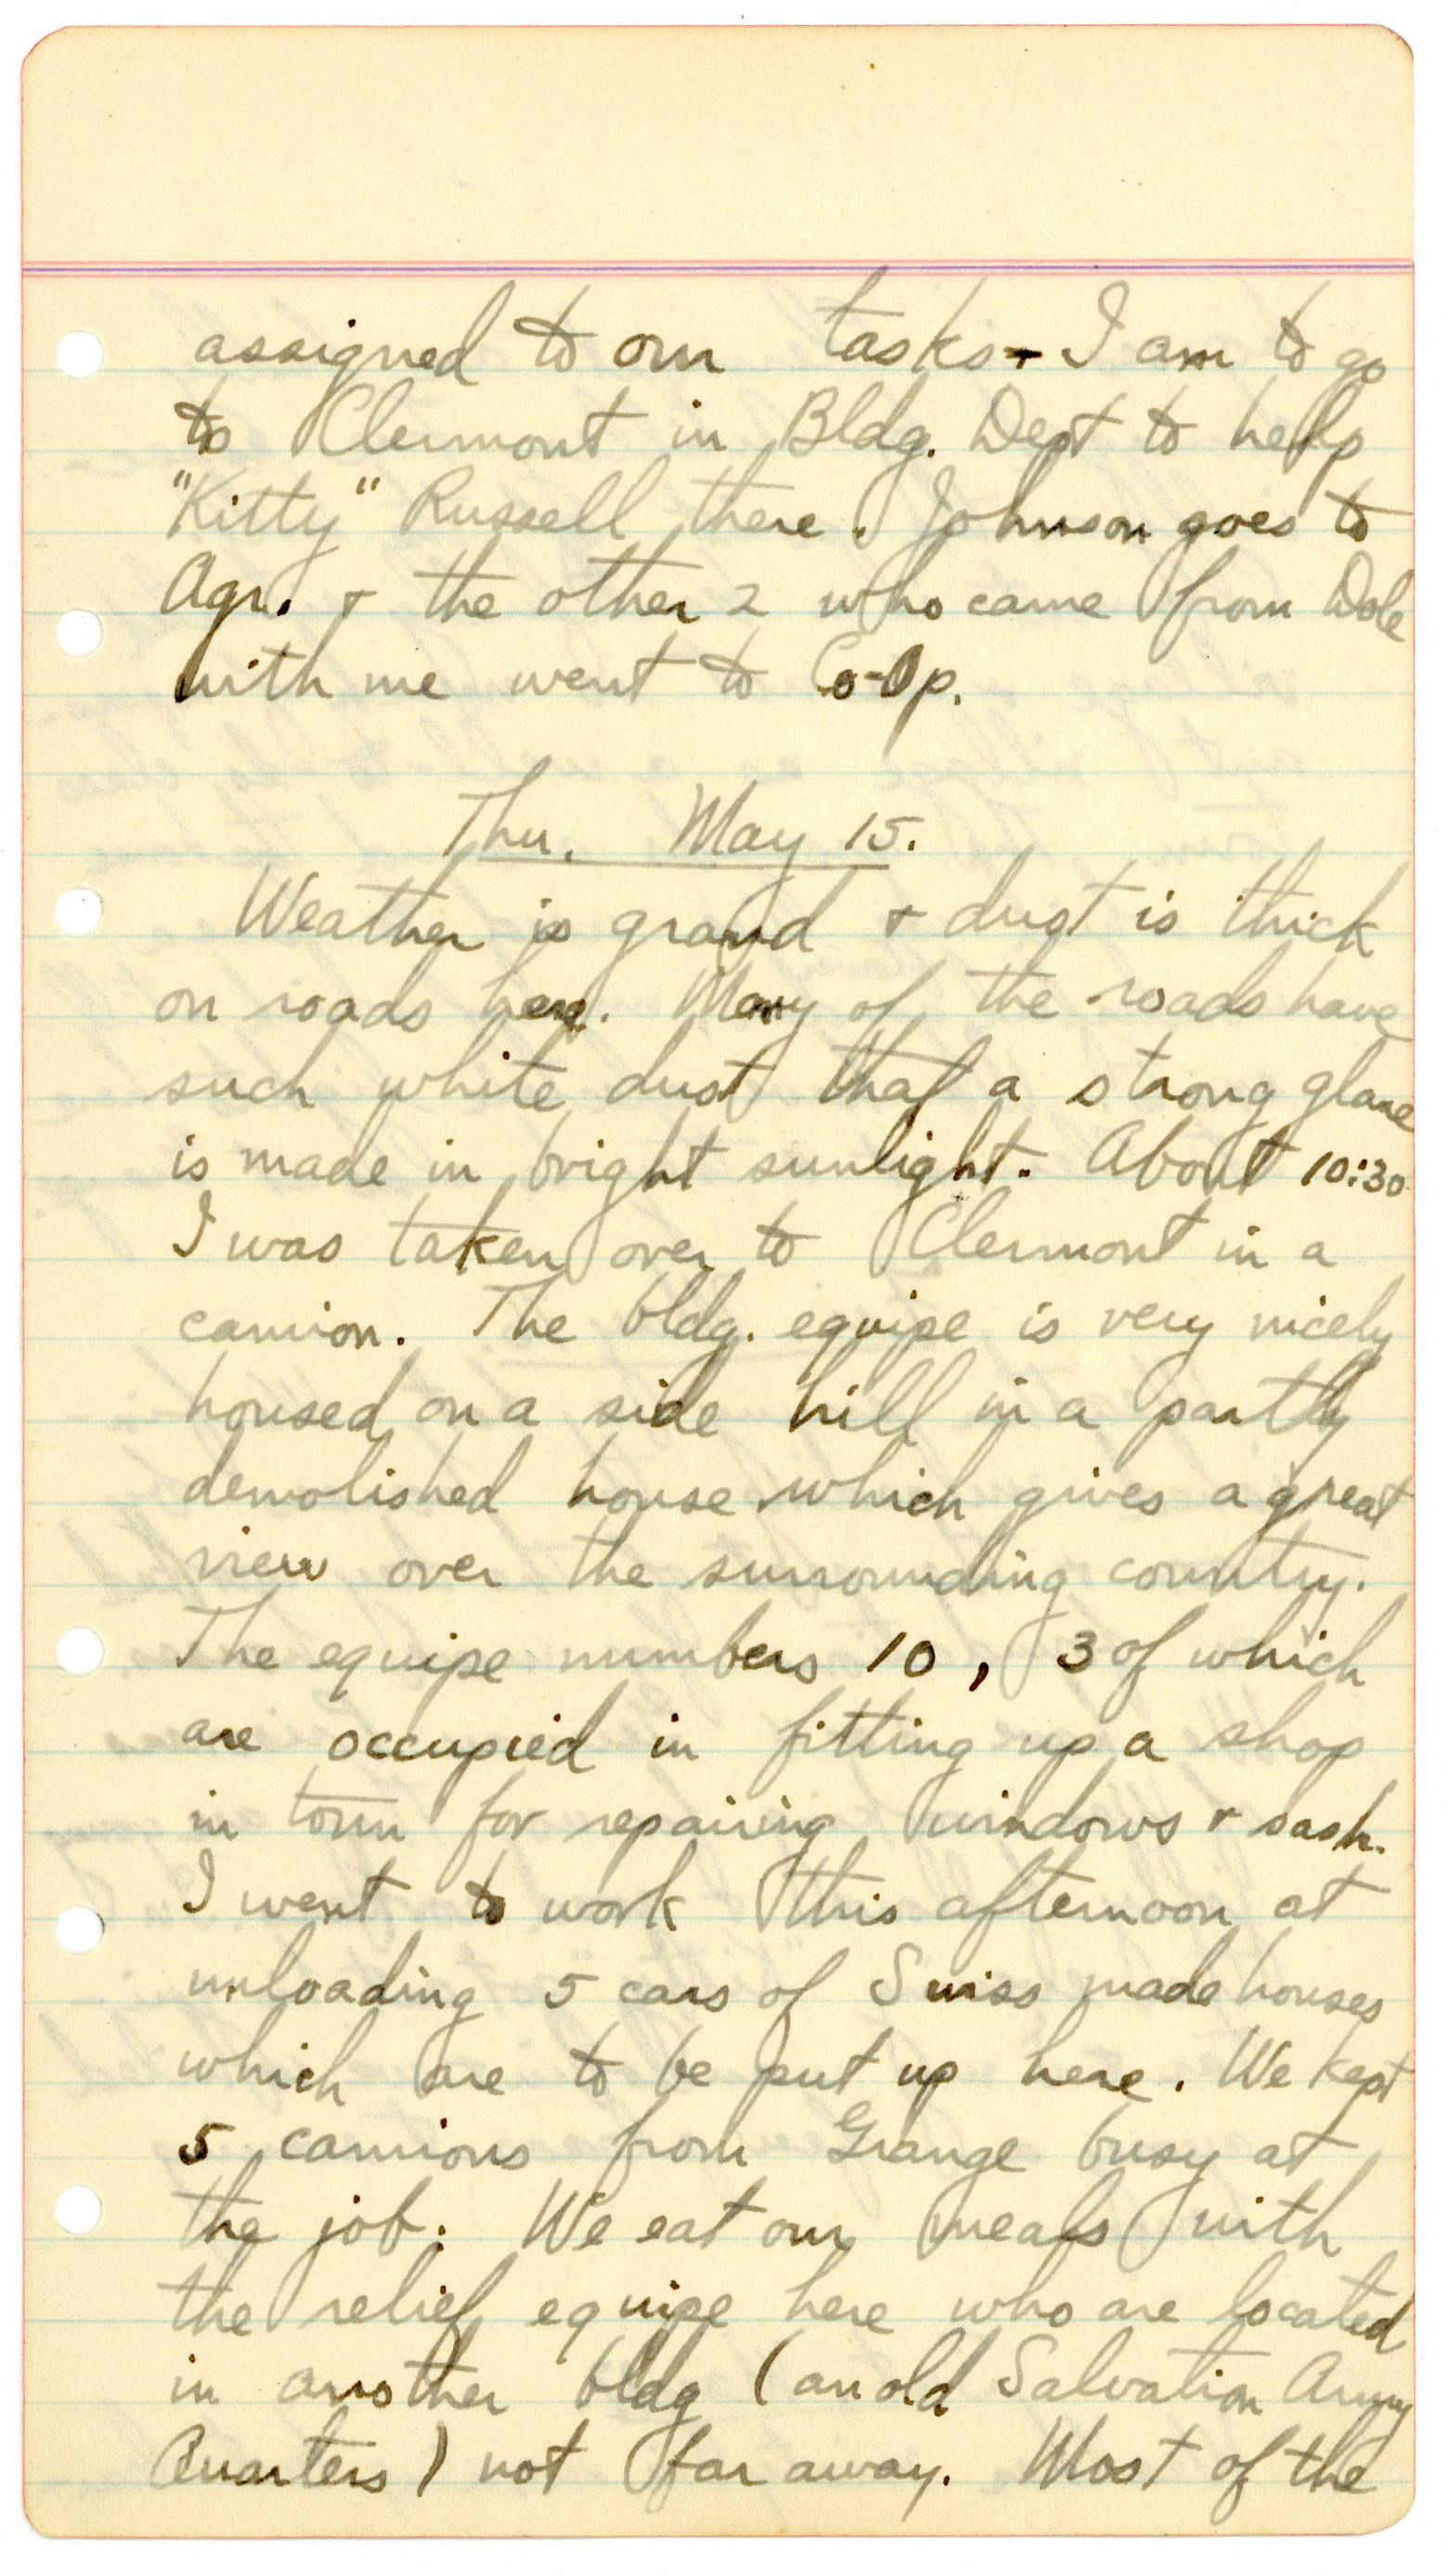 assigned to our tasks - I am to go
to Clermont in Bldg. Dept to help
"Kitty" Russell there. Johnson goes to
Agr. + the other 2 who came from Dole
with me went to Co-Op.
Thu. May 15.
Weather is grand + dust is thick
on roads here. Many of the roads have
such white dust that a strong glare
is made in bright sunlight. About 10:30
I was taken over to Clermont in a
camion. The bldg. equipe is very nicely
housed on a side hill in a partly
demolished house which gives a great
view over the surrounding country.
The equipe numbers 10, 3 of which
are occupied in fitting up a shop
in town for repairing windows + sash.
I went to work this afternoon at
unloading 5 cars of Swiss made houses
which are to be put up here. We kept
5 camions from Grange busy at
the job. We eat our meals with
the relief equipe here who are located
in another bldg (an old Salvation Army
Quarters) not far away. Most of the